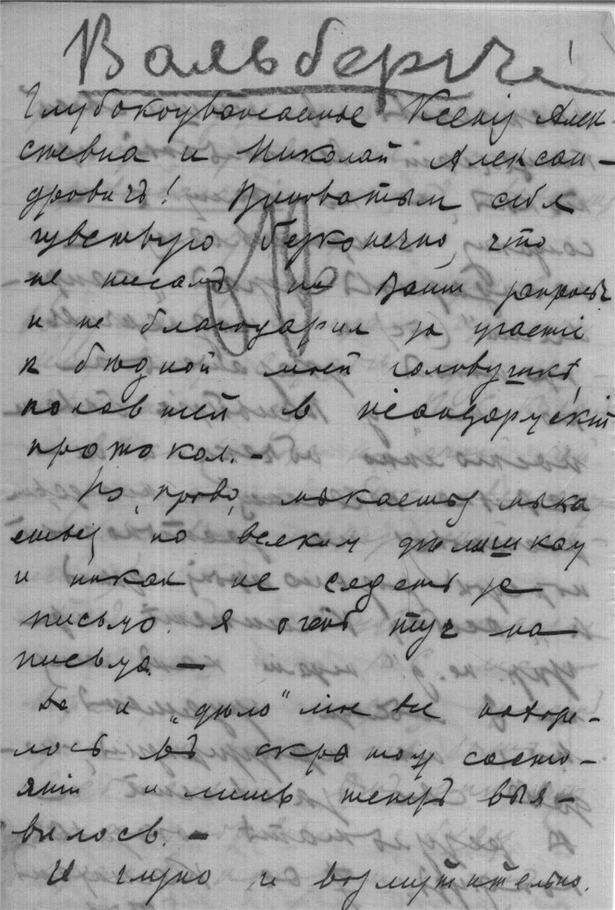 Вальберг
Глубокоуважаемые Ксенiя Алек-
сѣевна и Николай Алексан-
дровичъ! Виноватым себя
чувствую безконечно, что
не писалъ на Ваш запросъ
и не благодарил за участiе
к бѣдной моей головушкѣ,
попавшей в
протокол. —
Но, право, мыкаешься, мыка
ешься по всяким дѣлишкам
и никак не сядешь за
письмо. Я очень туг на
письма. —
Да и „дѣло" мое все
лось въ скрытом состо-
янiи и лишь теперь выя-
вилось. —
И глупо и возмутительно.